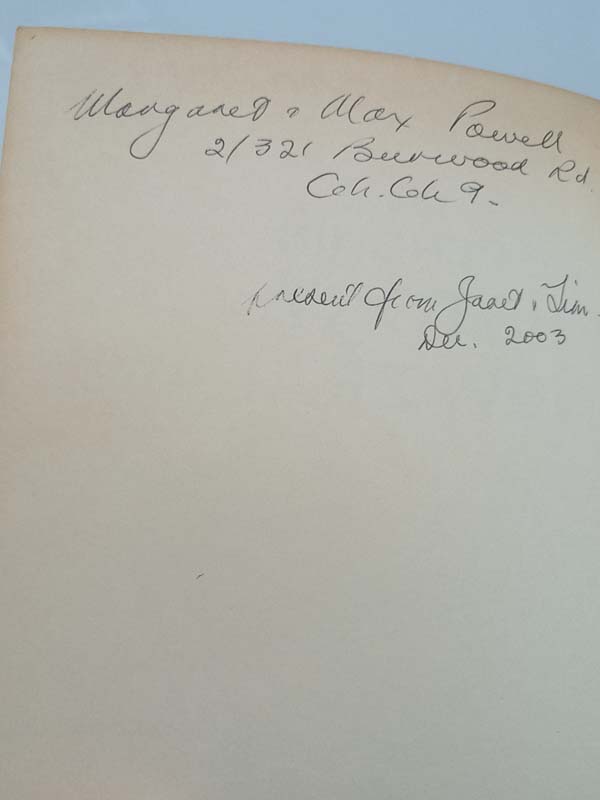 Margaret & Max Powell
2/321 Burwood Rd.
Ch. Ch 9.
present from Janet & Tim.
Dec. 2003